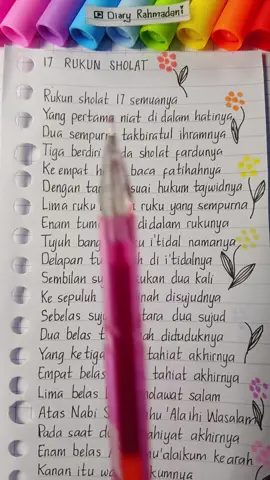 Diary Rahmadani
17 RUKUN SHOLAT
Rukun sholat 17 semuanya
Yang pertama niat di dalam hatinya
Dua sempurna takbiratul ihramnya
Tiga berdiri sholat fardunya
Ke empat baca fatihahnya
Dengan hukum tajwidnya
Lima ruku ruku yang sempurna
Enam didalam rukunya
Tujuh i'tidal namanya
Delapan di i'tidalnya
Sembilan dua kali
Ke sepuluh disujudnya
Sebelas dua sujud
Dua belas didudukn​ya
Yang ketiga tahiat akhirnya
Empat belas tahiat akhirnya
Lima belas salam
Atas Nabi 'Alaihi Wasalam
Pada saat akhirnya
Enam belas kearah
Kanan itu